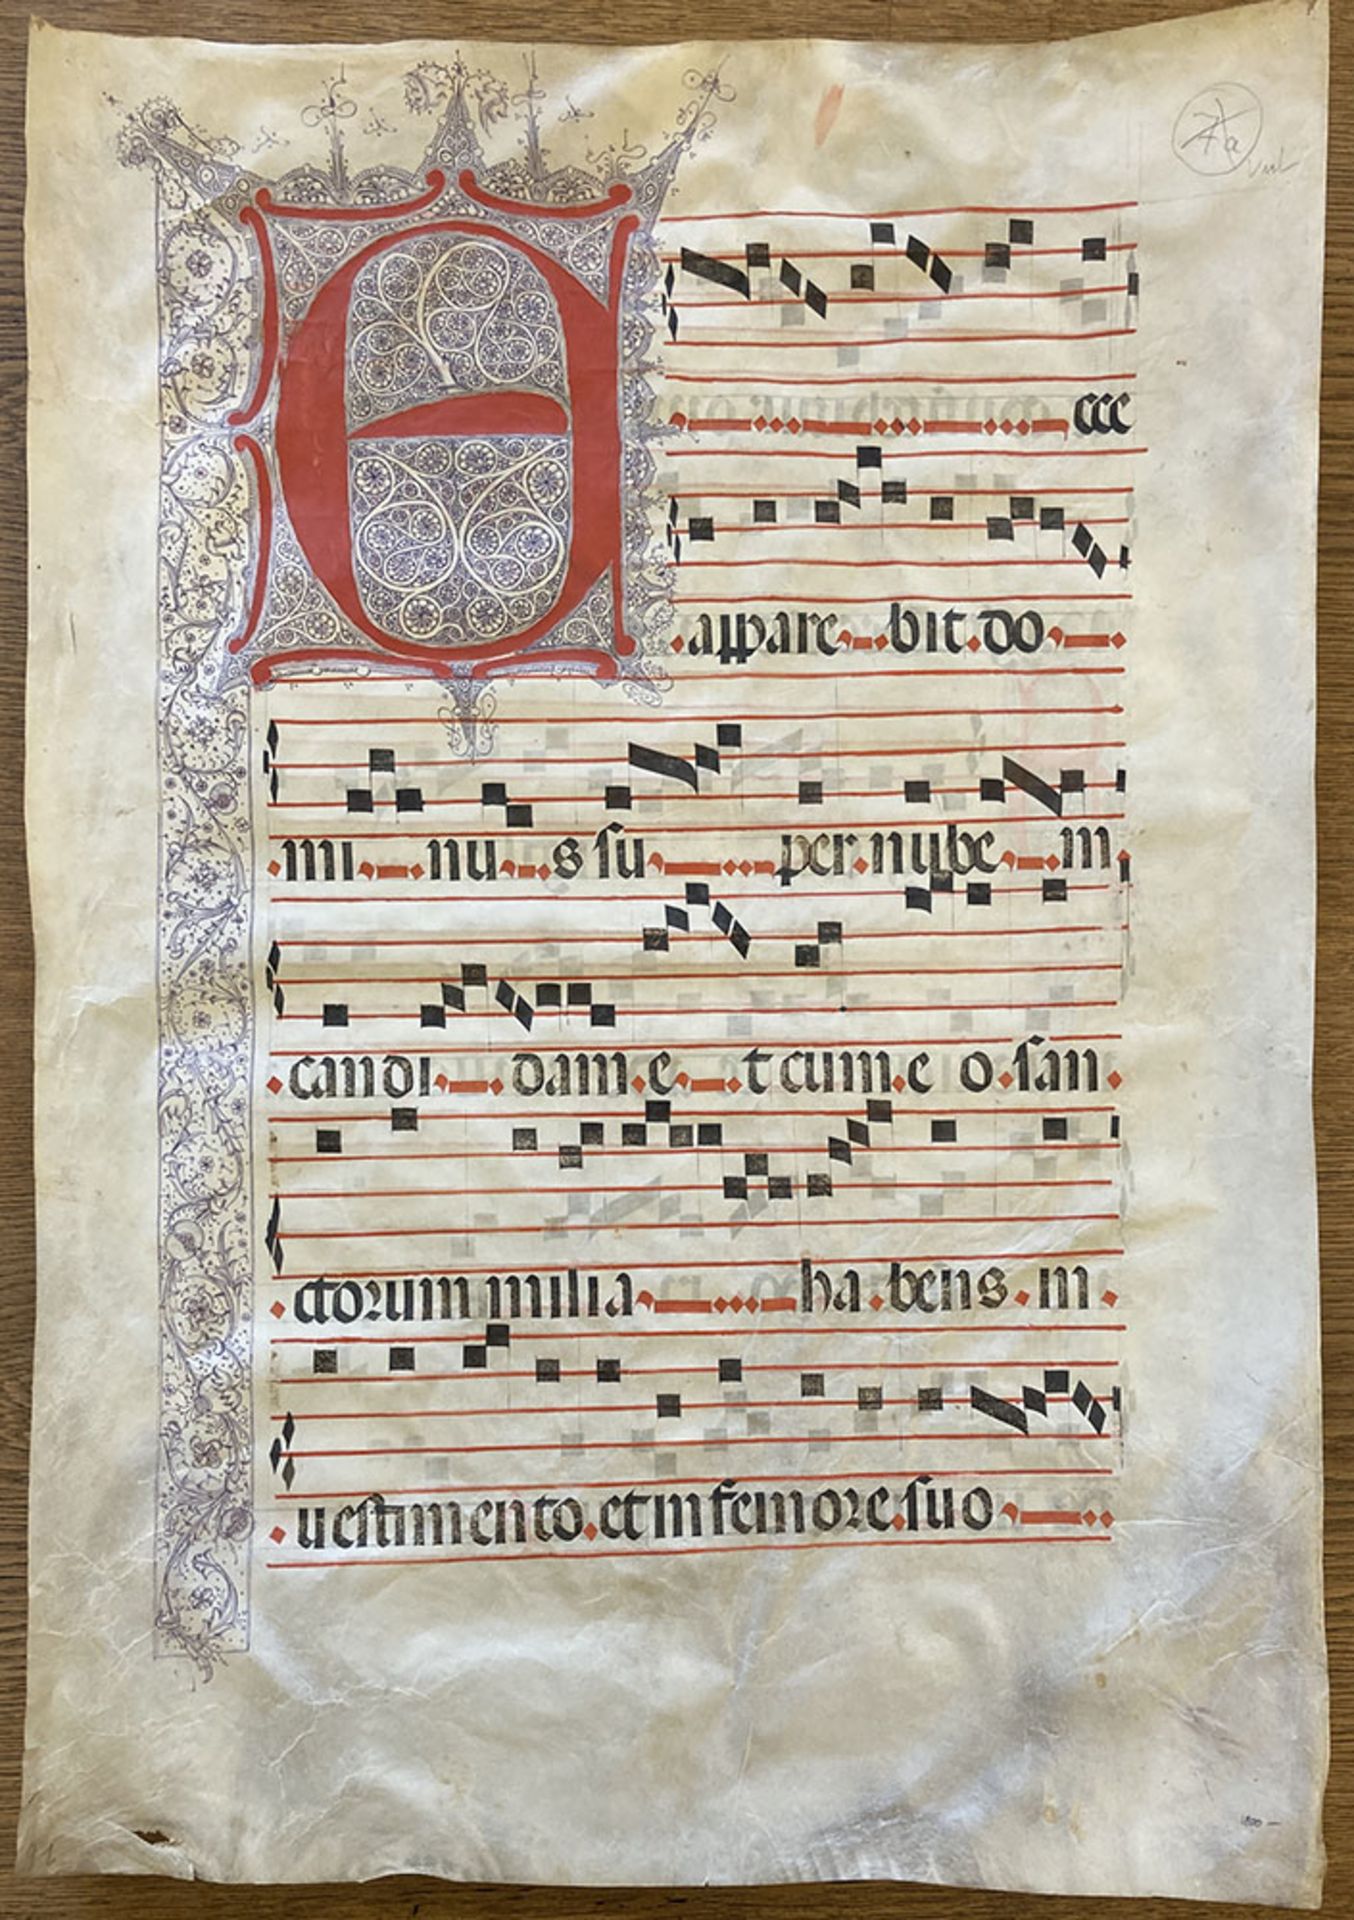 E ccce
.appare bit.do
.mi nu s su per.nube m.
.candi dam.e t cum.e o.san.
.ctorum milia ha.bens.in.
.uestimento.et in femore.suo